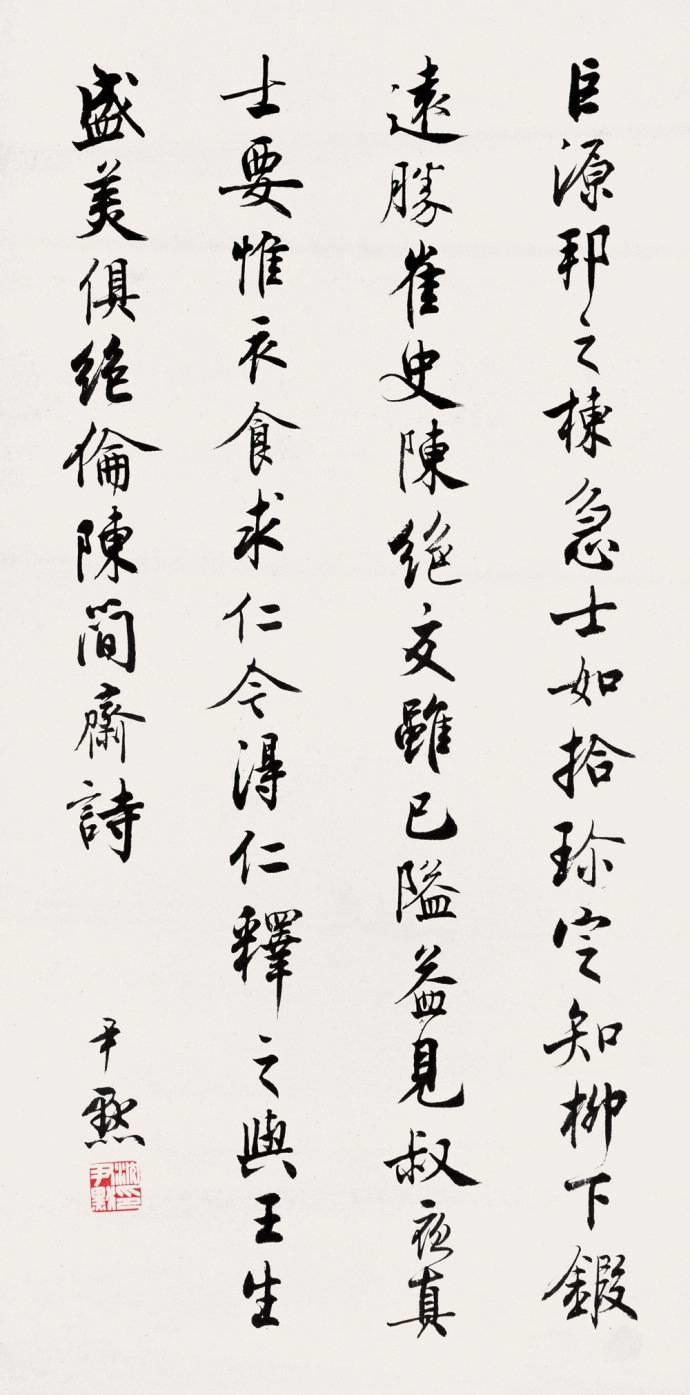 巨源邦之棟急士如拾珍定知柳下鍛
遠勝崔史陳絕交雖已隘益見叔夜真
士要惟衣食求仁今得仁釋之與王生
盛美俱絕倫陳簡齋詩
尹默
沈印尹默